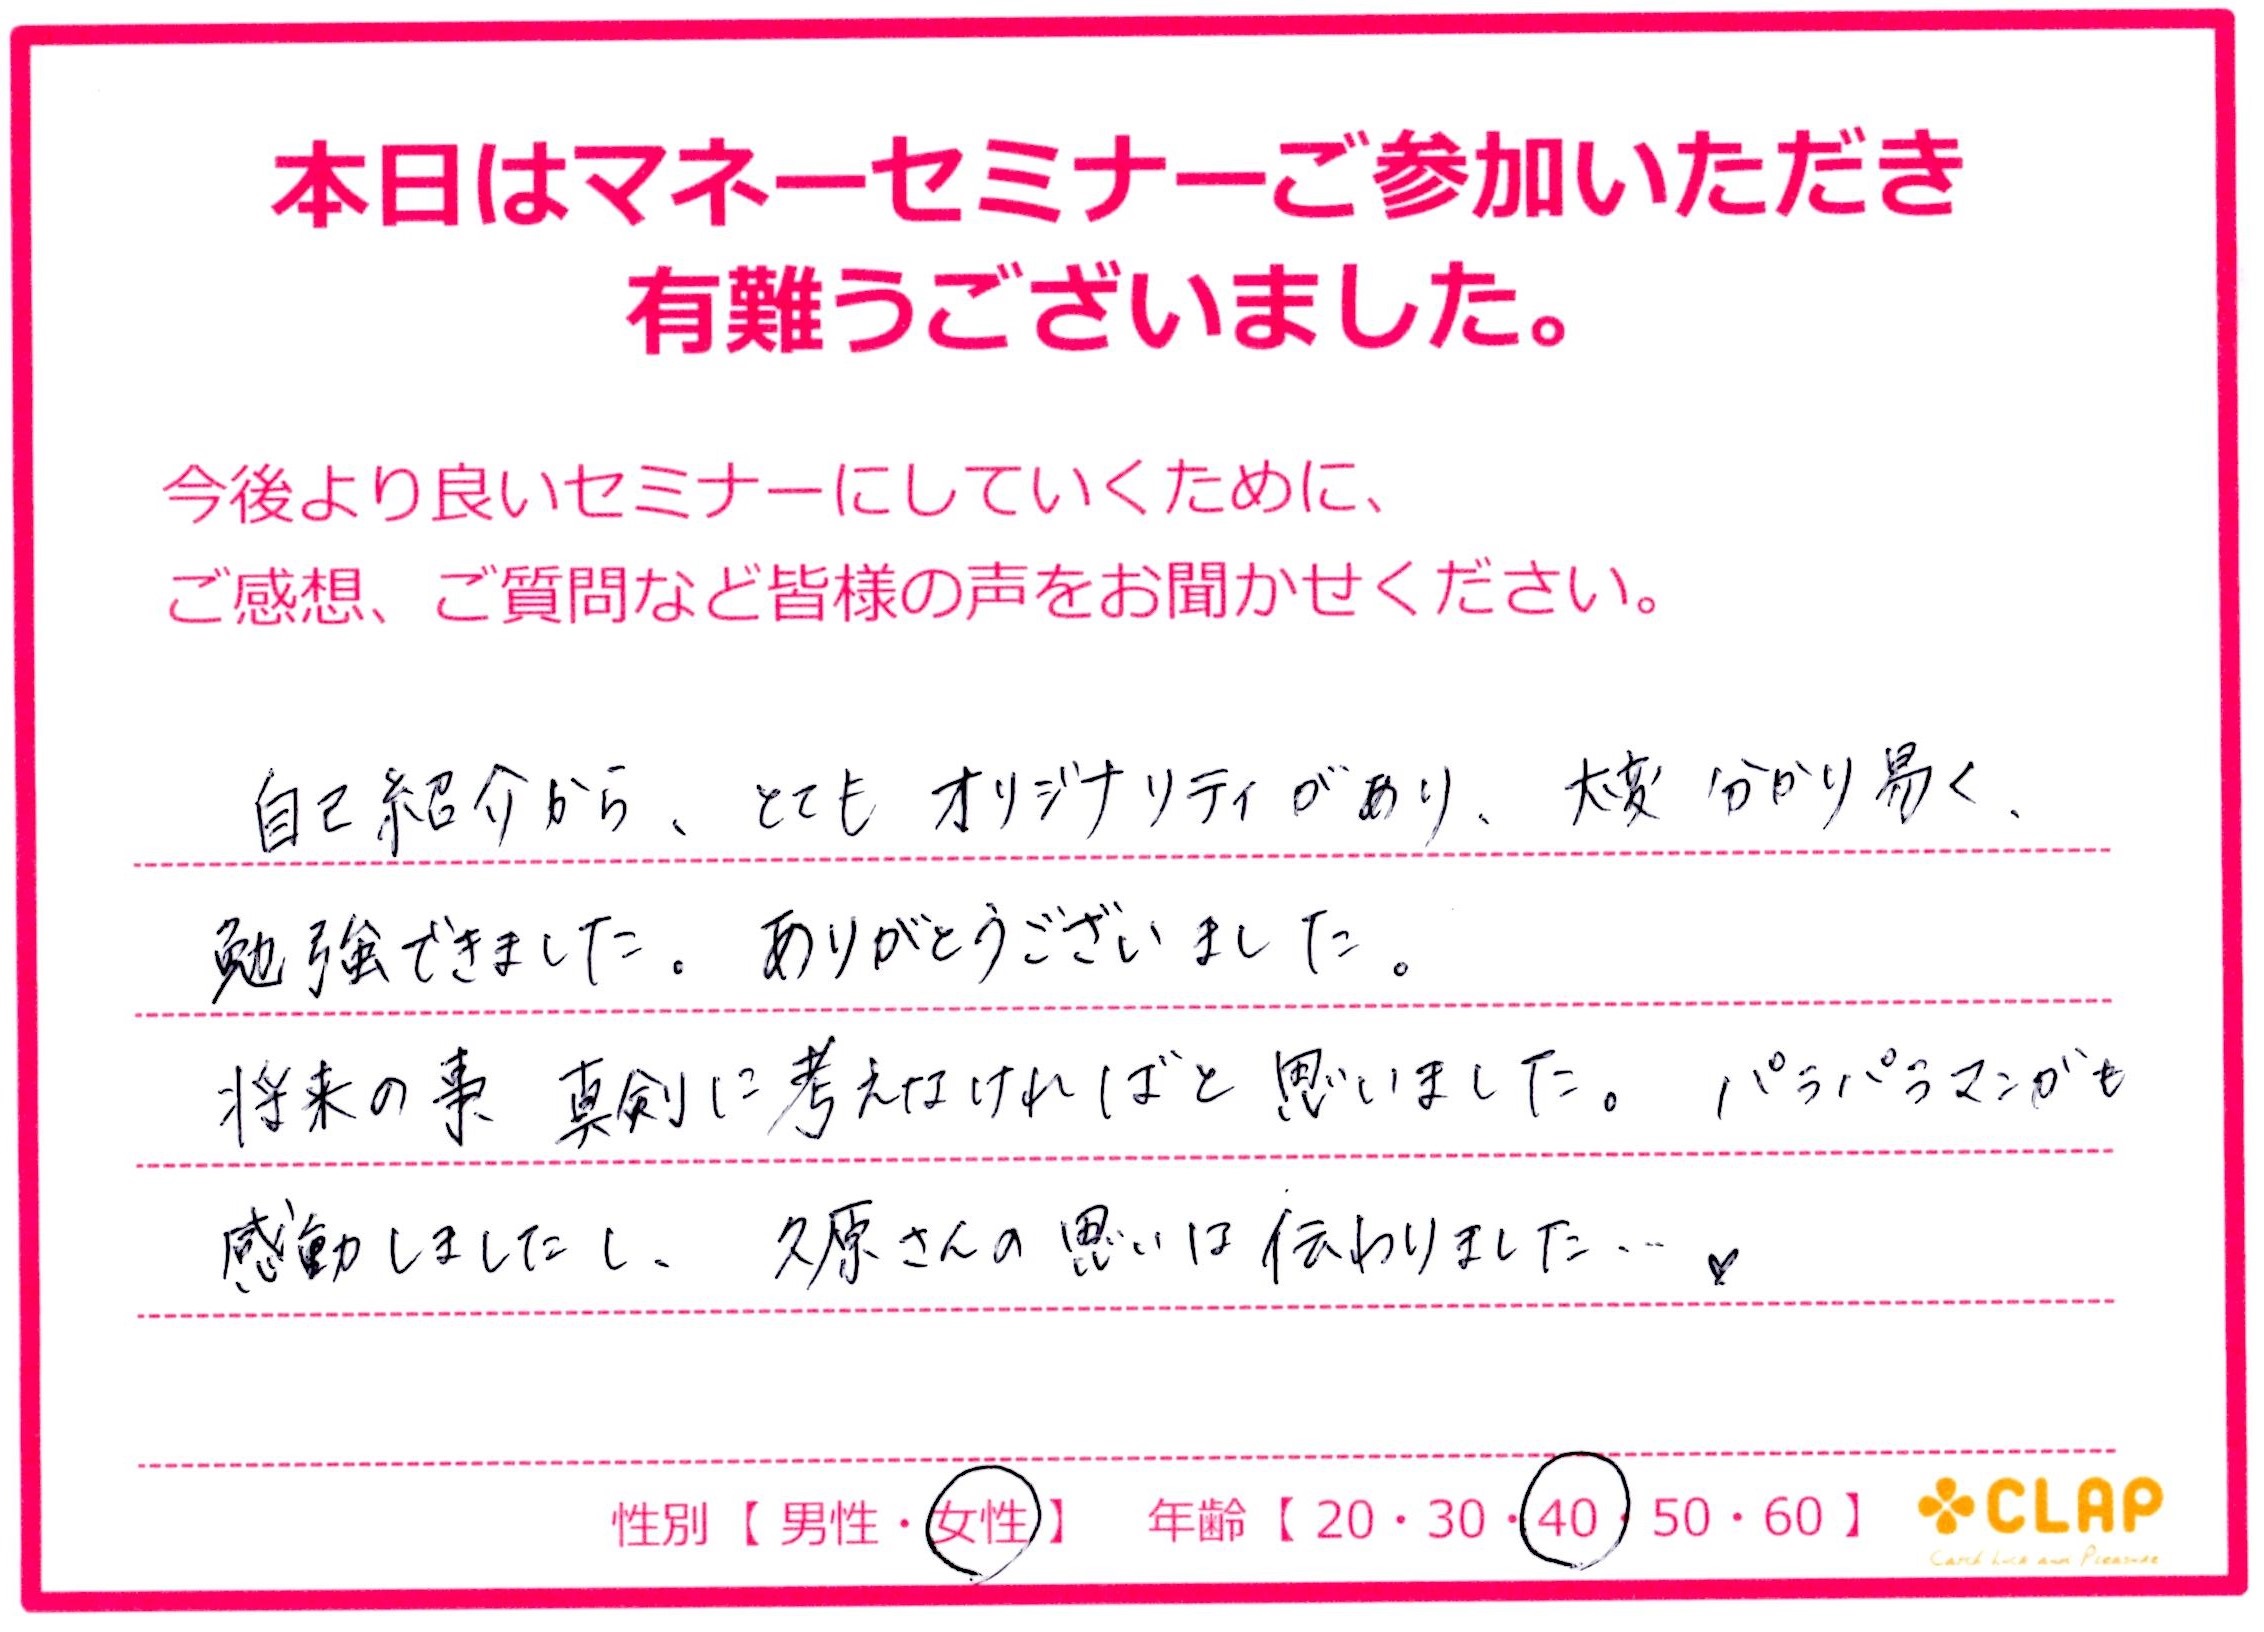 本日はマネーセミナーご参加いただき
有難うございました。
今後より良いセミナーにしていくために、
ご感想、ご質問など皆様の声をお聞かせください。
自己紹介から、とてもオリジナリティがあり、大変分かり易く、
勉強できました。ありがとうございました。
将来の事 真剣に考えなければと思いました。パラパラマンガも
感動しましたし、久原さんの思いは伝わりました…♥
性別【 男性・女性 】 年齢【 20・30・40・50・60 】
CLAP
Catch Luck and Pleasure